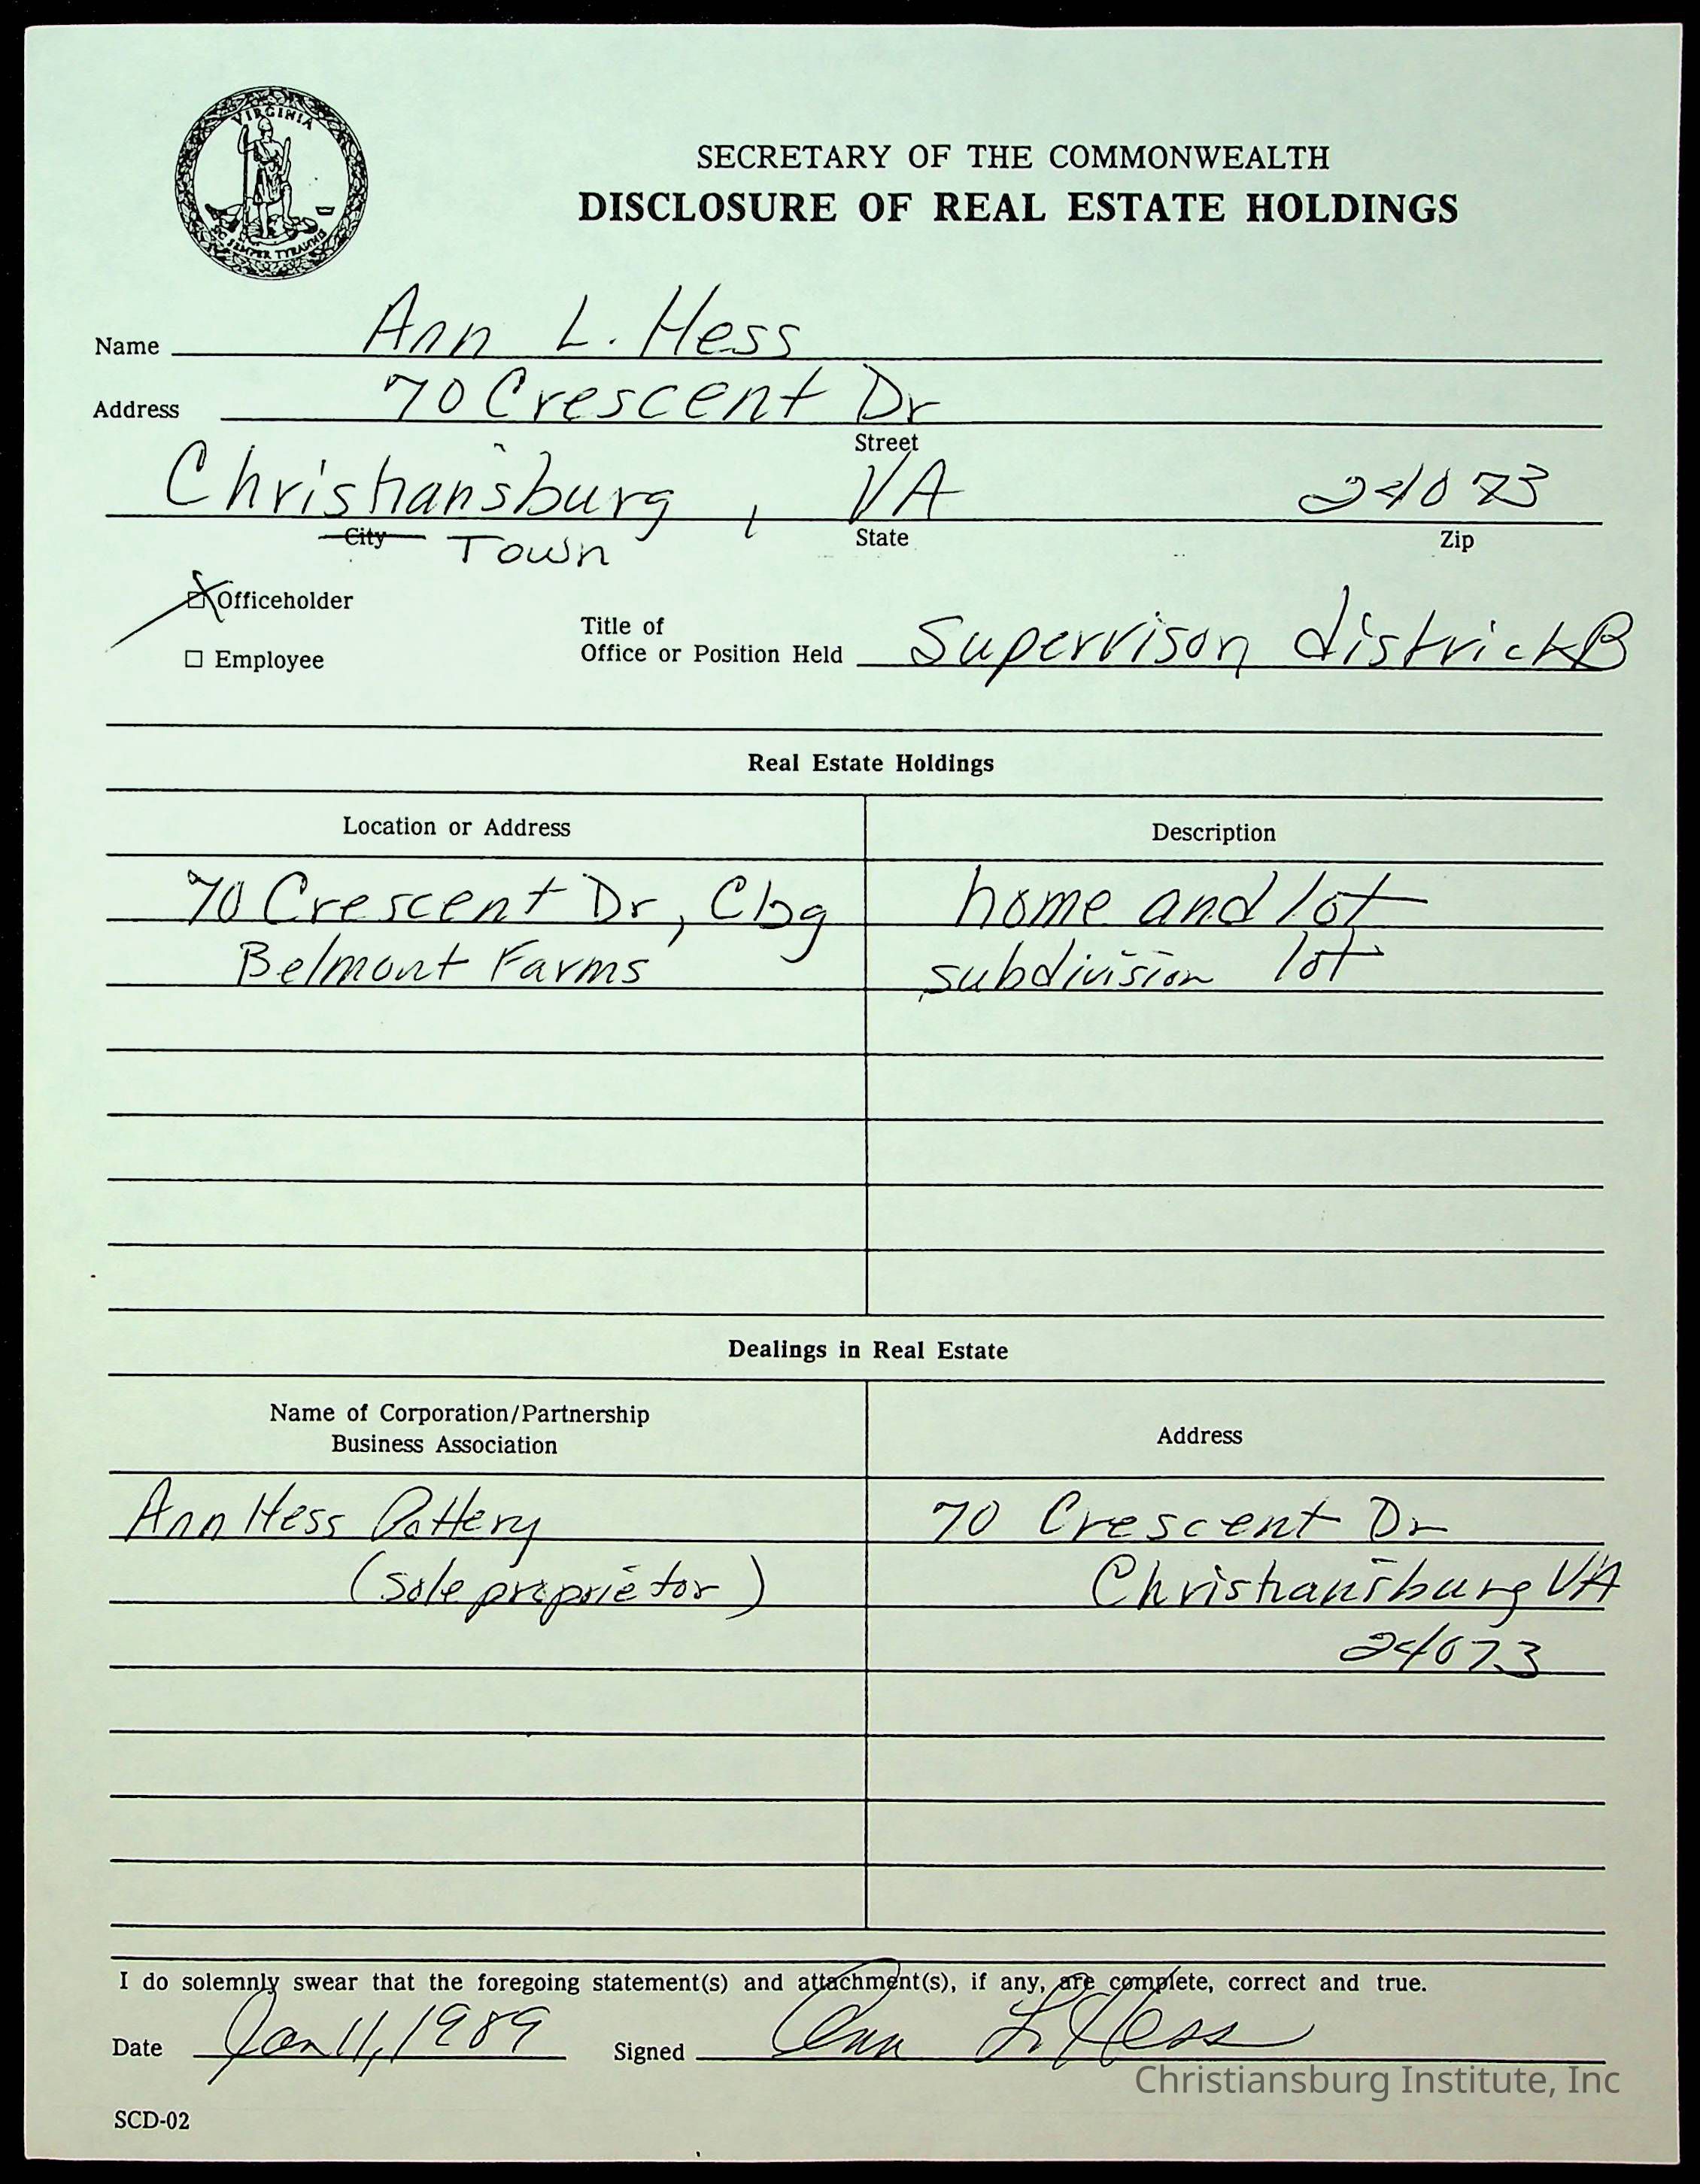 VIRGINIA
SIC SEMPER TYRANNIS
SECRETARY OF THE COMMONWEALTH
DISCLOSURE OF REAL ESTATE HOLDINGS
Name Ann L. Hess
Address 70 Crescent Dr
Street
Christiansburg, VA 24073
City Town State Zip
Officeholder
Title of
Office or Position Held Supervison districkB
Employee
Real Estate Holdings
Location or Address Description
70 Crescent Dr, Cbg home and lot
Belmont Farms subdivision lot
Dealings in Real Estate
Name of Corporation/Partnership
Business Association Address
Ann Hess Pottery 70 Crescent Dr
(sole proprietor) Christiansburg VA
24073
I do solemnly swear that the foregoing statement(s) and attachment(s), if any, are complete, correct and true.
Date Jan 11, 1989 Signed Ann L Hess
Christiansburg Institute, Inc
SCD-02